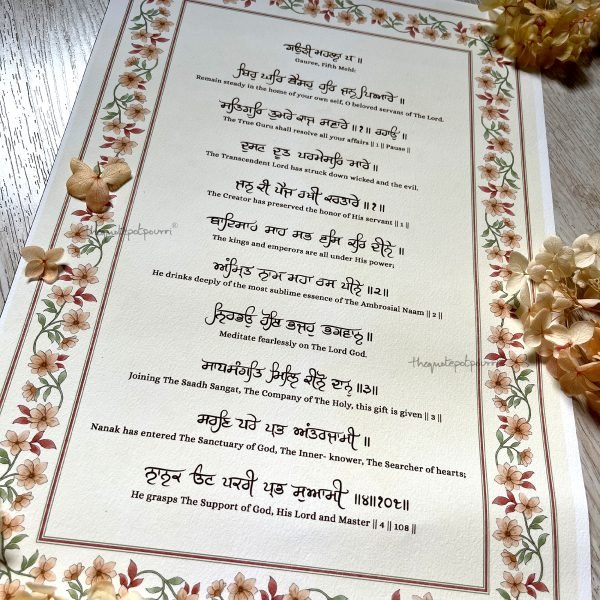 ਗਉੜੀ ਮਹਲਾ ੫ ॥
Gauree, Fifth Mehl:
ਥਿਰੁ ਘਰਿ ਬੈਸਹੁ ਹਰਿ ਜਨ ਪਿਆਰੇ ॥
Remain steady in the home of your own self, O beloved servant of The Lord.
ਸਤਿਗੁਰਿ ਤੁਮਰੇ ਕਾਜ ਸਵਾਰੇ ॥੧॥ ਰਹਾਉ ॥
The True Guru shall resolve all your affairs || 1 || Pause ||
ਦੁਸਟ ਦੂਤ ਪਰਮੇਸਰਿ ਮਾਰੇ ॥
The Transcendent Lord has struck down wicked and the evil.
ਜਨ ਕੀ ਪੈਜ ਰਖੀ ਕਰਤਾਰੇ ॥੧॥
The Creator has preserved the honor of His servant || 1 ||
ਬਾਦਿਸਾਹ ਸਾਹ ਸਭ ਵਸਿ ਕਰਿ ਦੀਨੇ ॥
The kings and emperors are all under His power;
ਅੰਮ੍ਰਿਤ ਨਾਮ ਮਹਾ ਰਸ ਪੀਨੇ ॥੨॥
He drinks deeply of the most sublime essence of The Ambrosial Naam || 2 ||
ਨਿਰਭਉ ਹੋਇ ਭਜਹੁ ਭਗਵਾਨ ॥
Meditate fearlessly on The Lord God.
ਸਾਧਸੰਗਤਿ ਮਿਲਿ ਕੀਨੋ ਦਾਨੁ ॥੩॥
Joining The Saadh Sangat, The Company of The Holy, this gift is given || 3 ||
ਸਰਣਿ ਪਰੇ ਪ੍ਰਭ ਅੰਤਰਜਾਮੀ ॥
Nanak has entered The Sanctuary of God, The Inner- knower, The Searcher of hearts;
ਨਾਨਕ ਓਟ ਪਕਰੀ ਪ੍ਰਭ ਸੁਆਮੀ ॥੪॥੧੦੮॥
He grasps The Support of God, His Lord and Master || 4 || 108 ||
thequotepotpourri®
thequotepotpourri